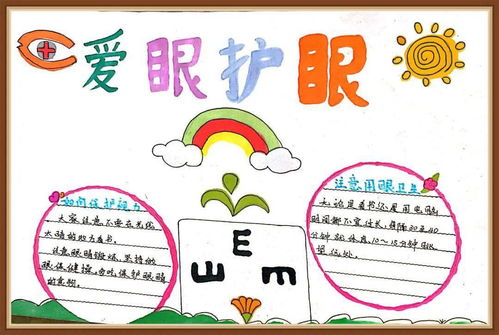 爱眼护眼
如何保护视力
大家注意不要在光线
太暗的地方看书。
注意眼睛锻炼,坚持做
眼保健操,多吃保护眼睛
的食物。
注意用眼卫生
无论是看书还是用电脑
时间都不宜过长,每隔30至40
分钟就休息10～15分钟眺
望远处。
E
E
E